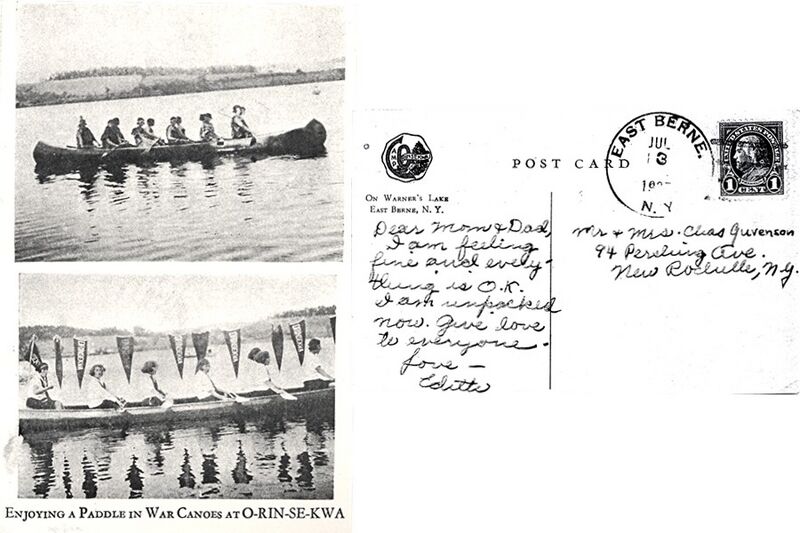 ENJOYING A PADDLE IN WAR CANOES AT O-RIN-SE-KWA
POST CARD
ON WARNER'S LAKE
EAST BERNE, N. Y.
EAST BERNE.
JUL
13
N. Y.
UNITED STATES POSTAGE
1 CENT 1
Dear Mom & Dad,
I am feeling
fine and every-
thing is O.K.
I am unpacked
now. Give love
to everyone.
Love –
Mr & Mrs. Chas
94 Pershing Ave.
New Rochelle, N.Y.